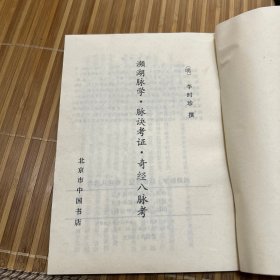 (明) 李时珍 撰
濒湖脉学·脉诀考证·奇经八脉考
北京市中国书店